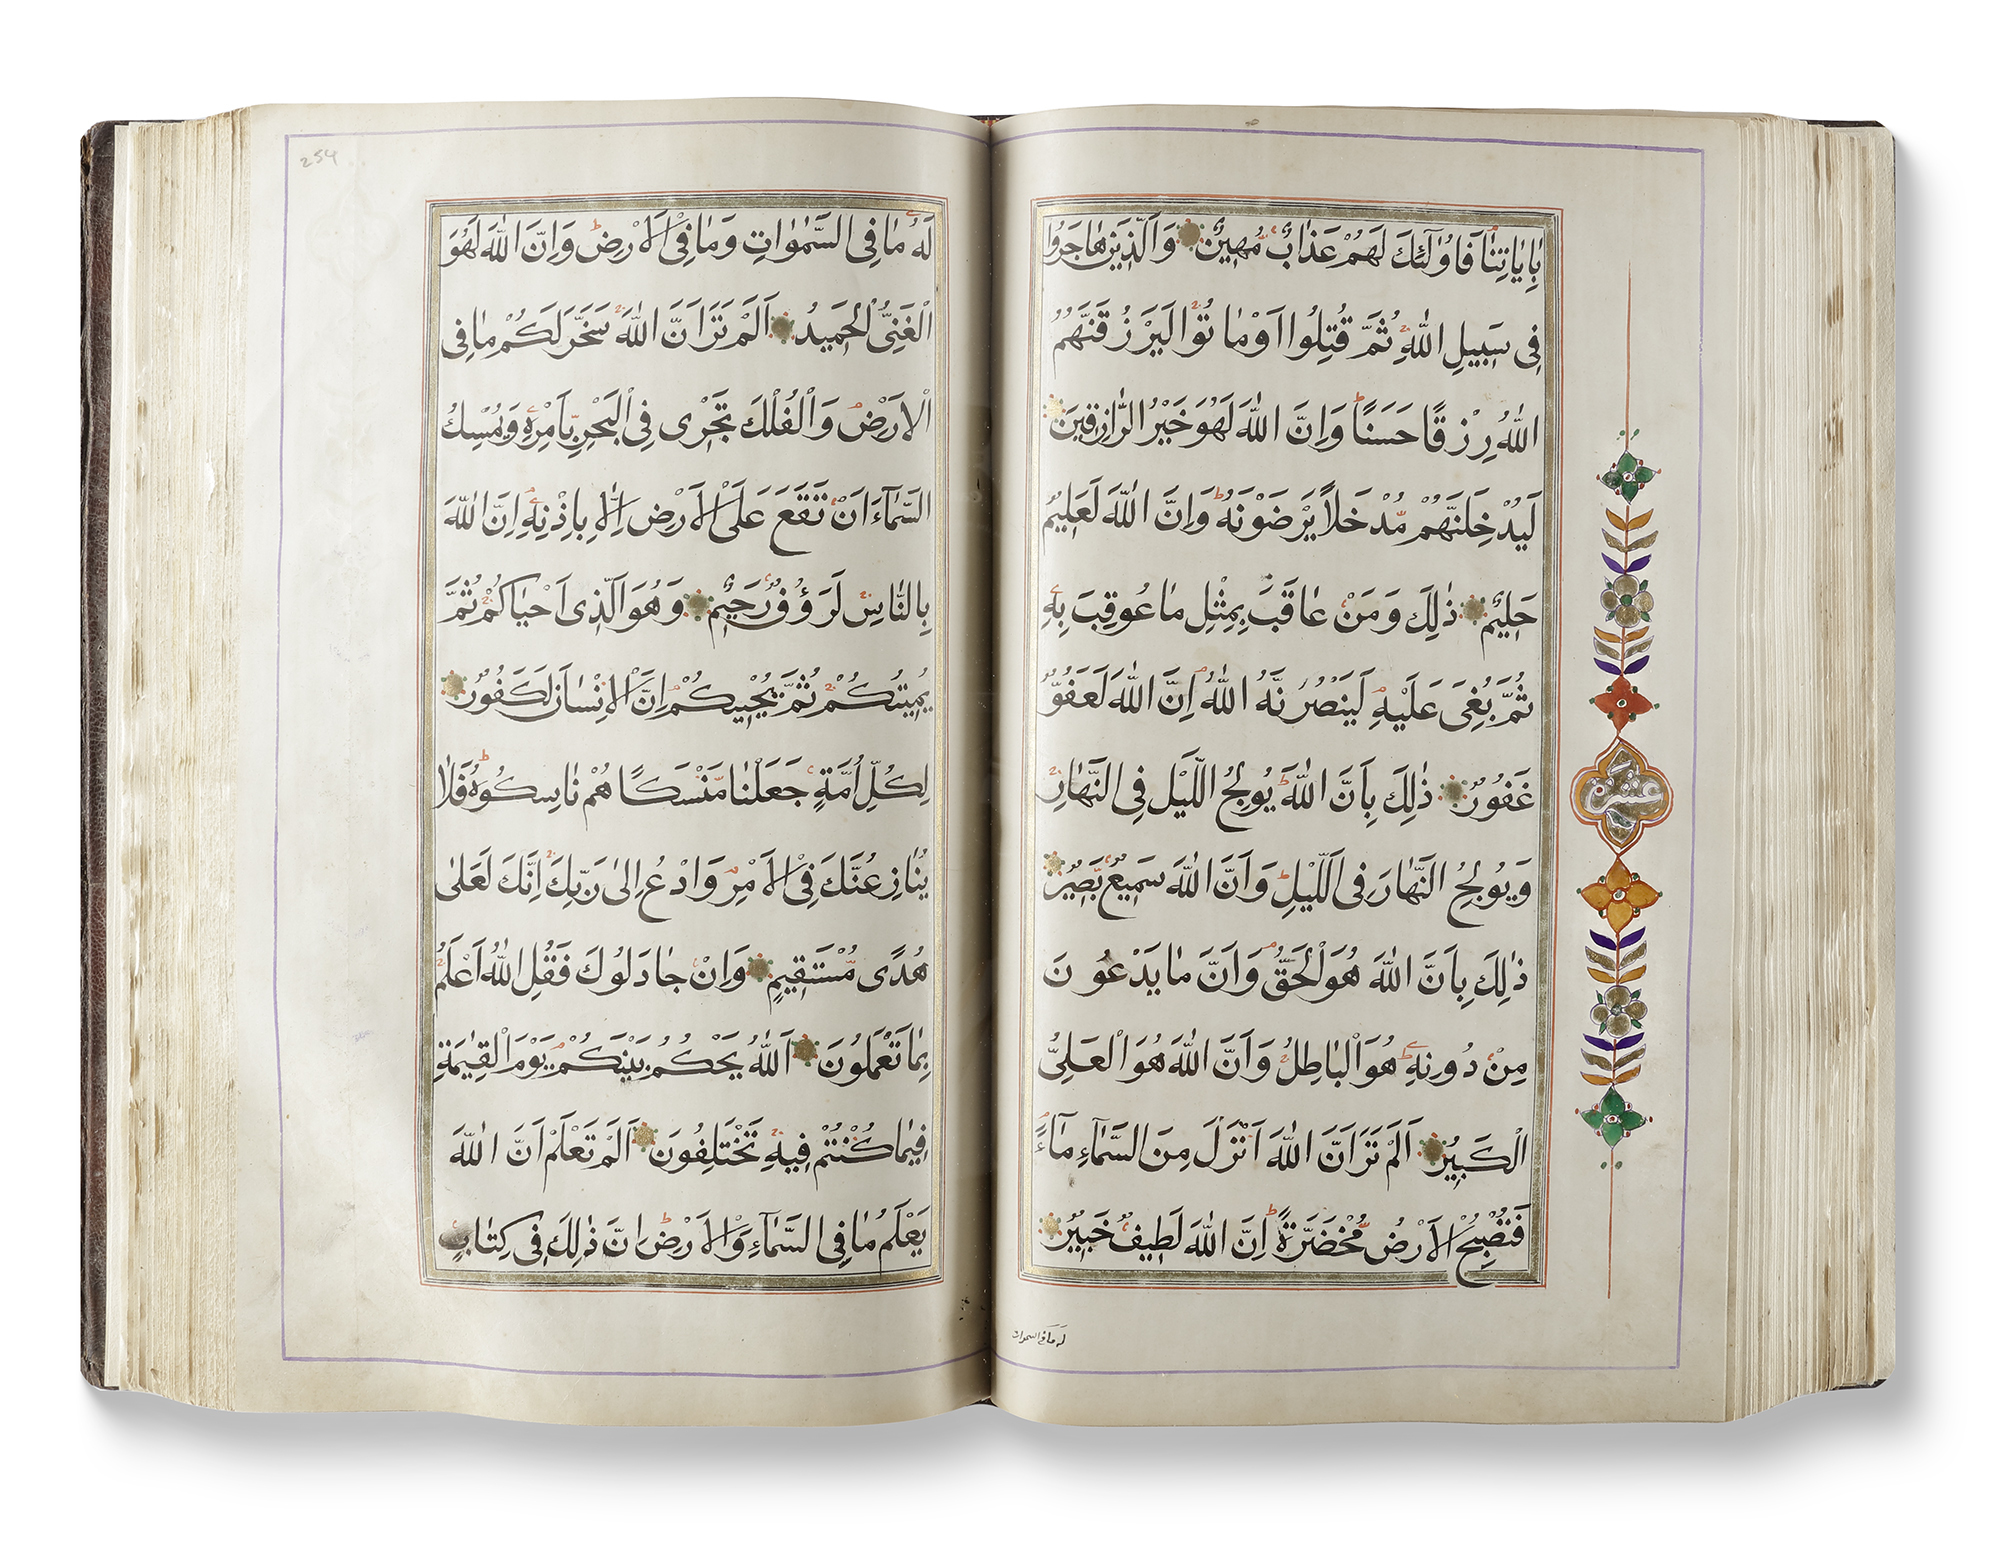 بِاٰيَاتِنَا فَاُولٰٓئِكَ لَهُمْ عَذَابٌ مُهِينٌ وَالَّذِينَ هَاجَرُوا
فِى سَبِيلِ اللّٰهِ ثُمَّ قُتِلُوا اَوْ مَا تُوا لَيَرْزُقَنَّهُمُ
اللّٰهُ رِزْقًا حَسَنًا وَاِنَّ اللّٰهَ لَهُوَ خَيْرُ الرَّازِقِينَ
لَيُدْخِلَنَّهُمْ مُدْخَلاً يَرْضَوْنَهُ وَاِنَّ اللّٰهَ لَعَلِيمٌ
حَلِيمٌ ذٰلِكَ وَمَنْ عَاقَبَ بِمِثْلِ مَا عُوقِبَ بِهِ
ثُمَّ بُغِىَ عَلَيْهِ لَيَنْصُرَنَّهُ اللّٰهُ اِنَّ اللّٰهَ لَعَفُوٌّ
غَفُورٌ ذٰلِكَ بِاَنَّ اللّٰهَ يُولِجُ اللَّيْلَ فِى النَّهَارِ
وَيُولِجُ النَّهَارَ فِى اللَّيْلِ وَاَنَّ اللّٰهَ سَمِيعٌ بَصِيرٌ
ذٰلِكَ بِاَنَّ اللّٰهَ هُوَ الْحَقُّ وَاَنَّ مَا يَدْعُونَ
مِنْ دُونِهِ هُوَ الْبَاطِلُ وَاَنَّ اللّٰهَ هُوَ الْعَلِىُّ
الْكَبِيرُ اَلَمْ تَرَ اَنَّ اللّٰهَ اَنْزَلَ مِنَ السَّمَآءِ مَآءً
فَتُصْبِحُ الْاَرْضُ مُخْضَرَّةً اِنَّ اللّٰهَ لَطِيفٌ خَبِيرٌ
له ما فى السموات
عشر
254
لَهُ مَا فِى السَّمٰوَاتِ وَمَا فِى الْاَرْضِ وَاِنَّ اللّٰهَ لَهُوَ
الْغَنِىُّ الْحَمِيدُ اَلَمْ تَرَ اَنَّ اللّٰهَ سَخَّرَ لَكُمْ مَا فِى
الْاَرْضِ وَالْفُلْكَ تَجْرِى فِى الْبَحْرِ بِاَمْرِهِ وَيُمْسِكُ
السَّمَآءَ اَنْ تَقَعَ عَلَى الْاَرْضِ اِلَّا بِاِذْنِهِ اِنَّ اللّٰهَ
بِالنَّاسِ لَرَؤُفٌ رَحِيمٌ وَهُوَ الَّذِى اَحْيَاكُمْ ثُمَّ
يُمِيتُكُمْ ثُمَّ يُحْيِيكُمْ اِنَّ الْاِنْسَانَ لَكَفُورٌ
لِكُلِّ اُمَّةٍ جَعَلْنَا مَنْسَكًا هُمْ نَاسِكُوهُ فَلَا
يُنَازِعُنَّكَ فِى الْاَمْرِ وَادْعُ اِلٰى رَبِّكَ اِنَّكَ لَعَلٰى
هُدًى مُسْتَقِيمٍ وَاِنْ جَادَلُوكَ فَقُلِ اللّٰهُ اَعْلَمُ
بِمَا تَعْمَلُونَ اَللّٰهُ يَحْكُمُ بَيْنَكُمْ يَوْمَ الْقِيٰمَةِ
فِيمَا كُنْتُمْ فِيهِ تَخْتَلِفُونَ اَلَمْ تَعْلَمْ اَنَّ اللّٰهَ
يَعْلَمُ مَا فِى السَّمَآءِ وَالْاَرْضِ اِنَّ ذٰلِكَ فِى كِتَابٍ